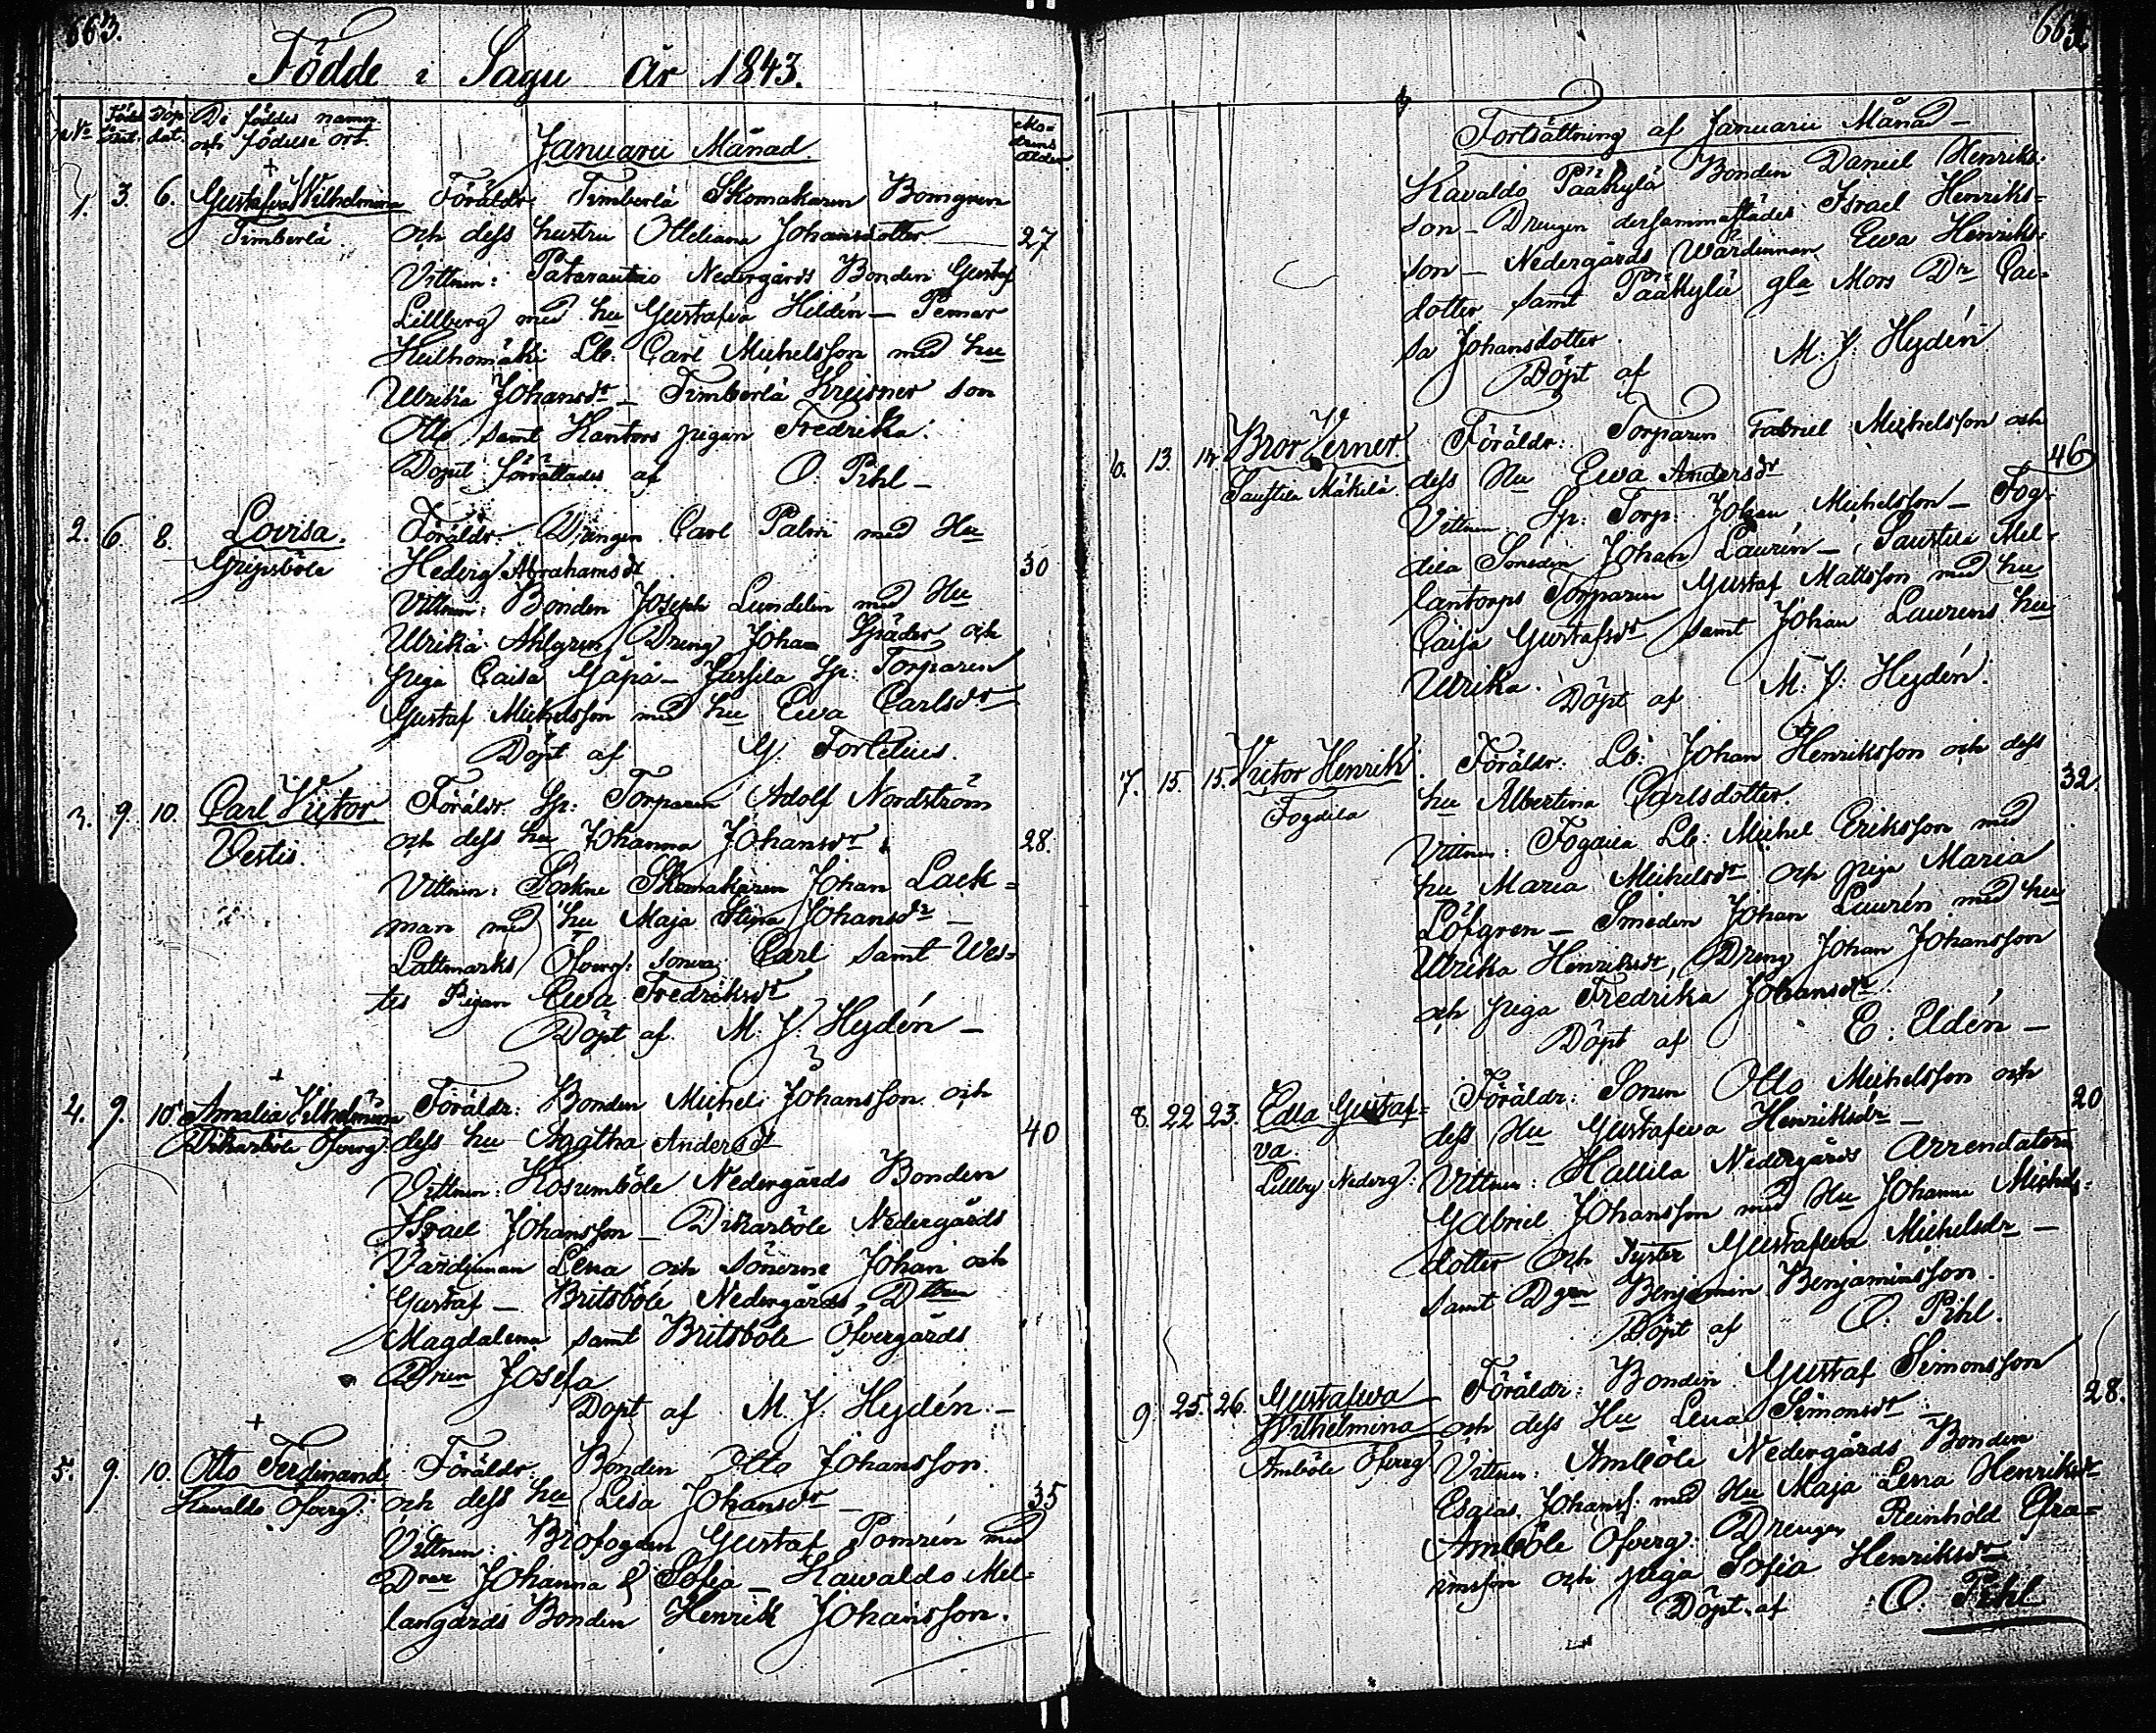 663.
Födde i Sagu år 1843.
No Född dat. Döp dat. De föddes namn och födelse ort. Januarii Månad. Modrens ålder
1. 3. 6. Gustafva Wilhelmina Föräldr. Timberlä Skomakaren Bomgren
Timberlä. och dess hustru Otteliana Johansdotter 27
Vittnen: Nedergårds Bonden Gustaf
Lillberg med hu Gustafva Heldén — Pemar
Lb: Carl Michelsson med hu
Ulrika Johansdr — Timberlä son
Otto samt Kantors pigan Fredrika.
Döpet förrättades af O. Pihl —
2. 6. 8. Lovisa. Föräldr. Drengen Carl Palm med Hu
Hedvig Abrahamsdr 30
Vittnen: Bonden Joseph Lundelin med Hu
Ulrika Ahlgren, Dreng Johan och
piga Caisa — Sp: Torparen
Gustaf Michelsson med hu Ewa Carlsdr
Döpt af G. Fortelius.
3. 9. 10. Carl Victor Föräldr. Sp: Torparen Adolf Nordström
Vestis. och dess hu Johanna Johansdr 28.
Vittnen: Skomakaren Johan Lack=
man med hu Maja Stina Johansdr —
Lattmarks Öfverg: sonen Carl samt Wes=
tes Pigan Ewa Fredriksdr
Döpt af M. J. Hydén —
4. 9. 10. Amalia Vilhelmina Föräldr: Bonden Michel Johansson och
Dikarböle Öfverg: dess hu Agatha Andersdr 40
Vittnen: Kosumböle Nedergårds Bonden
Israel Johansson — Dikarböle Nedergårds
Värdinnan Lena och sönerne Johan och
Gustaf — Britsböle Nedergårds, Dttren
Magdalena samt Britsböle Öfvergårds
Drien Josefa
Döpt af M. J. Hydén —
5. 9. 10. Otto Ferdinand Föräldr. Bonden Otto Johansson
Kavaldo Öfverg: och dess hu Lisa Johansdr — 35
Vittnen: Brofogden Gustaf Pomrén med
Drar Johanna & Sofia — Kawaldo Mel=
langårds Bonden Henrik Johansson.
664.
Fortsättning af Januarii Månad —
Kavaldo Pääkylä Bonden Daniel Henriks=
son — Drengen dersammastädes Israel Henriks=
son — Nedergårds Wärdinnan Ewa Henriks=
dotter samt Pääkylä gla Mors Dr Cai=
sa Johansdotter.
Döpt af M. J. Hydén
6. 13. 14. Bror Verner Föräldr: Torparen Gabriel Michelsson och
Saustila Mäkilä. dess Hu Ewa Andersdr 46
Vittnen: Sp: Torp: Johan Michelsson — Fog=
dila Smeden Johan Laurén — Saustila Mel=
lantorps Torparen Gustaf Mattsson med hu
Caisa Gustafsdr samt Johan Laurens hu
Ulrika. Döpt af M. J. Hydén.
7. 15. 15. Victor Henrik. Föräldr: Lb: Johan Henriksson och dess
Fogdila hu Albertina Carlsdotter. 32.
Vittnen: Fogdila Lb: Michel Eriksson med
hu Maria Michelsdr och piga Maria
Löfgren — Smeden Johan Laurén med hu
Ulrika Henriksdr, Dreng Johan Johansson
och piga Fredrika Johansdr.
Döpt af E. Eldén —
8. 22 23. Edla Gustaf= Föräldr: Sonen Otto Michelsson och 20
va. dess Hu Gustafwa Henriksdr —
Lillby Nederg: Vittnen: Hallila Nedergårds Arrendatorn
Gabriel Johansson med Hu Johanna Michels=
dotter och Syster Gustafwa Michelsdr —
samt Dgen Benjamin Benjaminsson.
Döpt af O. Pihl.
9. 25. 26. Gustafwa Föräldr: Bonden Gustaf Simonsson 28.
Wilhelmina och dess Hu Lena Simonsdr —
Amböle Öfverg: Vittnen: Amböle Nedergårds Bonden
Esaias Johanss: med Hu Maja Lena Henriksdr
Amböle Öfverg: Drengen Reinhold Efra=
imsson och piga Sofia Henriksdr
Döpt af O. Pihl